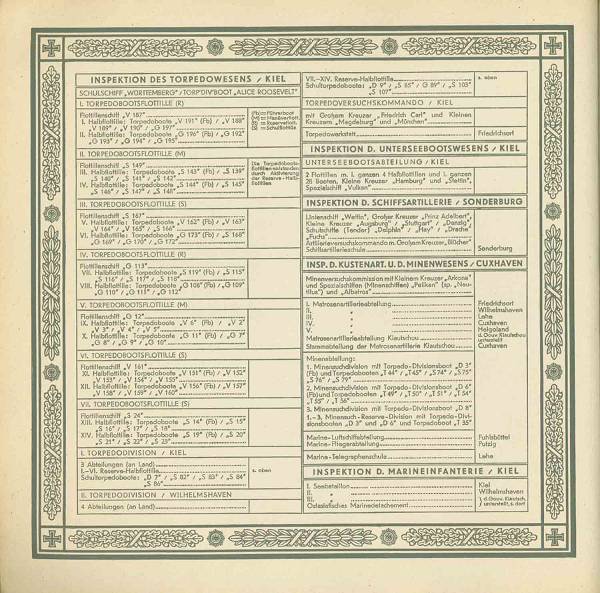 INSPEKTION DES TORPEDOWESENS / KIEL
SCHULSCHIFF „WÜRTTEMBERG" / TORP'DIV'BOOT „ALICE ROOSEVELT"
I. TORPEDOBOOTSFLOTTILLE (R)
Flottillenschiff „V 187"
I. Halbflottille: Torpedoboote „V 191" (Fb) / „V 188"
„V 189" / „V 190" / „G 197"
II. Halbflottille: Torpedoboote „G 196" (Fb) „G 192"
„G 193" / „G 194" / „G 195"
(Fb) = Führerboot
(M) = Manöverflott.
(R) = Reserveflott.
(S) = Schulflottille
II. TORPEDOBOOTSFLOTTILLE (M)
Flottillenschiff „S 149"
III. Halbflottille: Torpedoboote „S 143" (Fb) / „S 139"
„S 140" / „S 141" / „S 142"
IV. Halbflottille: Torpedoboote „S 144" (Fb) / „S 145"
„S 146" / „S 147" / „S 148"
Die Torpedoboots-
flottillen entstanden
durch Aktivierung
der Reserve-Halb-
flottillen
III. TORPEDOBOOTSFLOTTILLE (S)
Flottillenschiff „S 167"
V. Halbflottille: Torpedoboote „V 162" (Fb) „V 163"
„V 164" / „V 165" / „S 166"
VI. Halbflottille: Torpedoboote „G 173" (Fb) „S 168"
„G 169" / „G 170" / „G 172"
IV. TORPEDOBOOTSFLOTTILLE (R)
Flottillenschiff „G 113"
VII. Halbflottille: Torpedoboote „S 119" (Fb) / „S 115"
„S 116" / „S 117" / „S 118"
VIII. Halbflottille: Torpedoboote „G 108" (Fb) „G 109"
„G 110" / „G 111" / „G 112"
V. TORPEDOBOOTSFLOTTILLE (M)
Flottillenschiff „G 12"
IX. Halbflottille: Torpedoboote „V 6" (Fb) / „V 2"
„V 3" / „V 4" / „V 5"
X. Halbflottille: Torpedoboote „G 11" (Fb) / „G 7"
„G 8" / „G 9" / „G 10"
VI. TORPEDOBOOTSFLOTTILLE (S)
Flottillenschiff „V 161"
XI. Halbflottille: Torpedoboote „V 151" (Fb) / „V 152"
„V 153" / „V 154" / „V 155"
XII. Halbflottille: Torpedoboote „V 156" (Fb) „V 157"
„V 158" / „V 159" / „V 160"
VII. TORPEDOBOOTSFLOTTILLE (S)
Flottillenschiff „S 24"
XIII. Halbflottille: Torpedoboote „S 14" (Fb) / „S 15"
„S 16" / „S 17" / „S 18"
XIV. Halbflottille: Torpedoboote „S 19" (Fb) / „S 20"
„S 21" / „S 22" / „S 23"
I. TORPEDODIVISION / KIEL
3 Abteilungen (an Land)
I.–VI. Reserve-Halbflottille
Schultorpedoboote: „D 7" / „S 82" / „S 83" / „S 84"
„S 86"
s. oben
II. TORPEDODIVISION / WILHELMSHAVEN
4 Abteilungen (an Land)
VII.–XIV. Reserve-Halbflottille
Schultorpedoboote: „D 9" / „S 85" / G 89" / „S 103"
„S 107"
s. oben
TORPEDOVERSUCHSKOMMANDO / KIEL
mit Großem Kreuzer „Friedrich Carl" und Kleinen
Kreuzern „Magdeburg" und „München"
Torpedowerkstatt Friedrichsort
INSPEKTION D. UNTERSEEBOOTSWESENS / KIEL
UNTERSEEBOOTSABTEILUNG / KIEL
2 Flottillen m. i. ganzen 4 Halbflottillen und i. ganzen
28 Booten, Kleine Kreuzer „Hamburg" und „Stettin",
Spezialschiff „Vulkan"
INSPEKTION D. SCHIFFSARTILLERIE / SONDERBURG
Linienschiff „Wettin", Großer Kreuzer „Prinz Adalbert",
Kleine Kreuzer „Augsburg" / „Stuttgart" / „Danzig",
Schulschiffe (Tender) „Delphin" / „Hay" / „Drache"
„Fuchs"
Artillerieversuchskommando m. Großem Kreuzer „Blücher"
Schiffsartillerieschule Sonderburg
INSP. D. KÜSTENART. U. D. MINENWESENS / CUXHAVEN
Minenversuchskommission mit Kleinem Kreuzer „Arkona"
und Spezialschiffen (Minenschiffen) „Pelikan" (sp. „Nau-
tilus") und „Albatros"
I. Matrosenartillerieabteilung Friedrichsort
II. " Wilhelmshaven
III. " Lehe
IV. " Cuxhaven
V. " Helgoland
Matrosenartillerieabteilung Kiautschou d. Gouv. Kiautschou unterstellt
Stammabteilung der Matrosenartillerie Kiautschou Cuxhaven
Minenabteilung: Cuxhaven
1. Minensuchdivision mit Torpedo-Divisionsboot „D 3"
(Fb) und Torpedobooten „T 44" / „T 45" „S 74" / „S 75"
„S 76" / „S 79"
2. Minensuchdivision mit Torpedo-Divisionsboot „D 6"
(Fb) und Torpedobooten „T 49" / „T 50" / „T 51" / „T 54"
„T 55" / „T 56"
3. Minensuchdivision mit Torpedo-Divisionsboot „D 8"
1.–3. Minensuch-Reserve-Division mit Torpedo-Divi-
sionsbooten „D 3" und „D 6" und Torpedoboot „T 35"
Marine-Luftschiffabteilung Fuhlsbüttel
Marine-Fliegerabteilung Putzig
Marine-Telegraphenschule Lehe
INSPEKTION D. MARINEINFANTERIE / KIEL
I. Seebataillon Kiel
II. " Wilhelmshaven
III. " d. Gouv. Kiautsch.
Ostasiatisches Marinedetachement unterstellt, s. dort